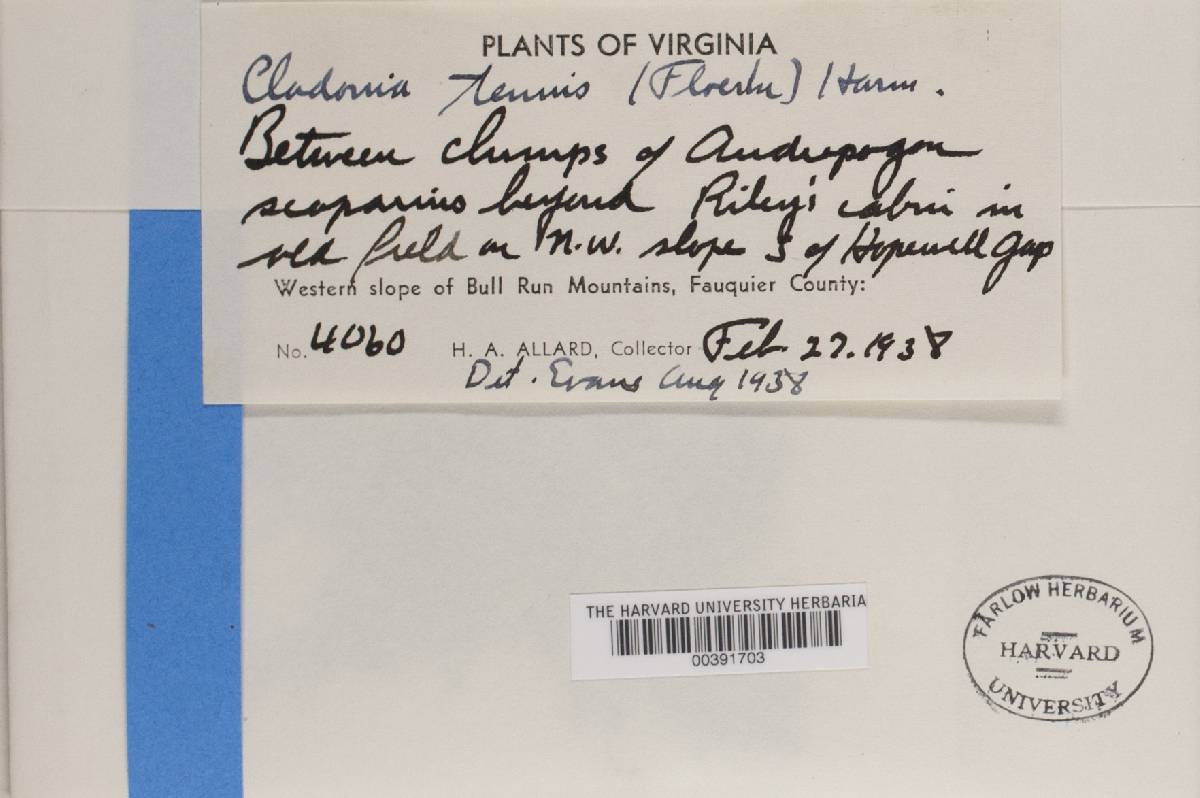 PLANTS OF VIRGINIA
Cladonia tenuis (Floerke) Harm.
Between clumps of Andropogon
scoparius beyond Riley's cabin in
old field on N.W. slope S of Hopewell Gap
Western slope of Bull Run Mountains, Fauquier County:
No. 4060 H. A. ALLARD, Collector Feb 27. 1938
Det. Evans Aug 1938
THE HARVARD UNIVERSITY HERBARIA
00391703
FARLOW HERBARIUM
HARVARD
UNIVERSITY